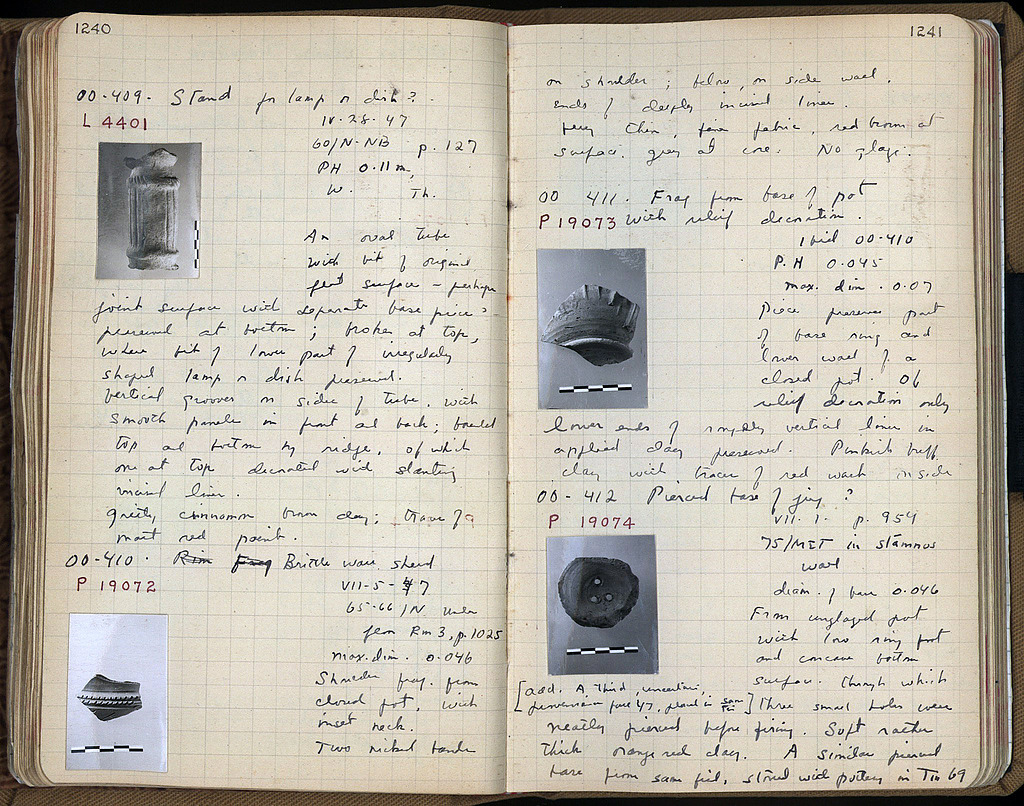 1240
OO-409. Stand for lamp or dish?
L 4401
IV-28-47
60/N-NB p. 127
PH 0.11 m,
W. Th.
An oval tube
with bit of original
flat surface - perhaps
joint surface with separate base piece?
preserved at bottom; broken at top,
where bit of lower part of irregularly
shaped lamp or dish preserved.
Vertical grooves on sides of tube, with
smooth panels in front and back;
top and bottom by ridge, of which
one at top decorated with slanting
incised lines.
Gritty cinnamon brown clay; trace of
matt red paint.
OO-410. Rim frag Brittle ware sherd
P 19072
VII-5-47
65-66/N under
floor Rm 3, p. 1025
max. dim. 0.046
Shoulder frag. from
closed pot, with
inset neck.
Two nicked bands
1241
on shoulder; below, on side wall,
ends of deeply incised lines.
Very thin, fine fabric, red brown at
surface, gray at core. No glaze.
OO 411. Frag from base of pot
P 19073 with relief decoration.
Ibid OO-410
P.H 0.045
max. dim. 0.07
Piece preserves part
of base ring and
lower wall of a
closed pot. Of
relief decoration only
lower ends of roughly vertical lines in
applied clay preserved. Pinkish buff
clay with traces of red wash inside
OO-412 Pierced base of jug?
P 19074
VII. 1. p. 954
75/MET in stamnos
wall
diam. of base 0.046
From unglazed pot
with low ring foot
and concave bottom
surface through which
[add. A third, uncertain,
provenience 47, found in same tin] Three small holes were
neatly pierced before firing. Soft rather
thick orange red clay. A similar pierced
base from same fill, stored with pottery in Tin 69